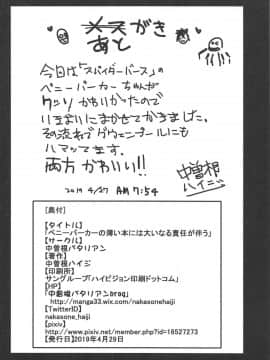 メスがき
あと
今日は「スパイダーバース」の
ペニーパーカーちゃんが
クッソかわいかったので
いきおいにまかせてかきました。
その流れでグウェンプールにも
ハマってます。
両方かわいい!!
2019 4/27 AM 7:54
中曽根
ハイジ
[奥付]
【タイトル】
「ペニーパーカーの薄い本には大いなる責任が伴う」
【サークル】
中曽根バタリアン
【著作】
中曽根ハイジ
【印刷所】
サングループ「ハイビジョン印刷ドットコム」
【HP】
「中曽根バタリアンbrog」
http://manga33.wix.com/nakasonehaiji
【TwitterID】
nakasone_haiji
【pixiv】
http://www.pixiv.net/member.php?id=18527273
【発行日】2019年4月29日